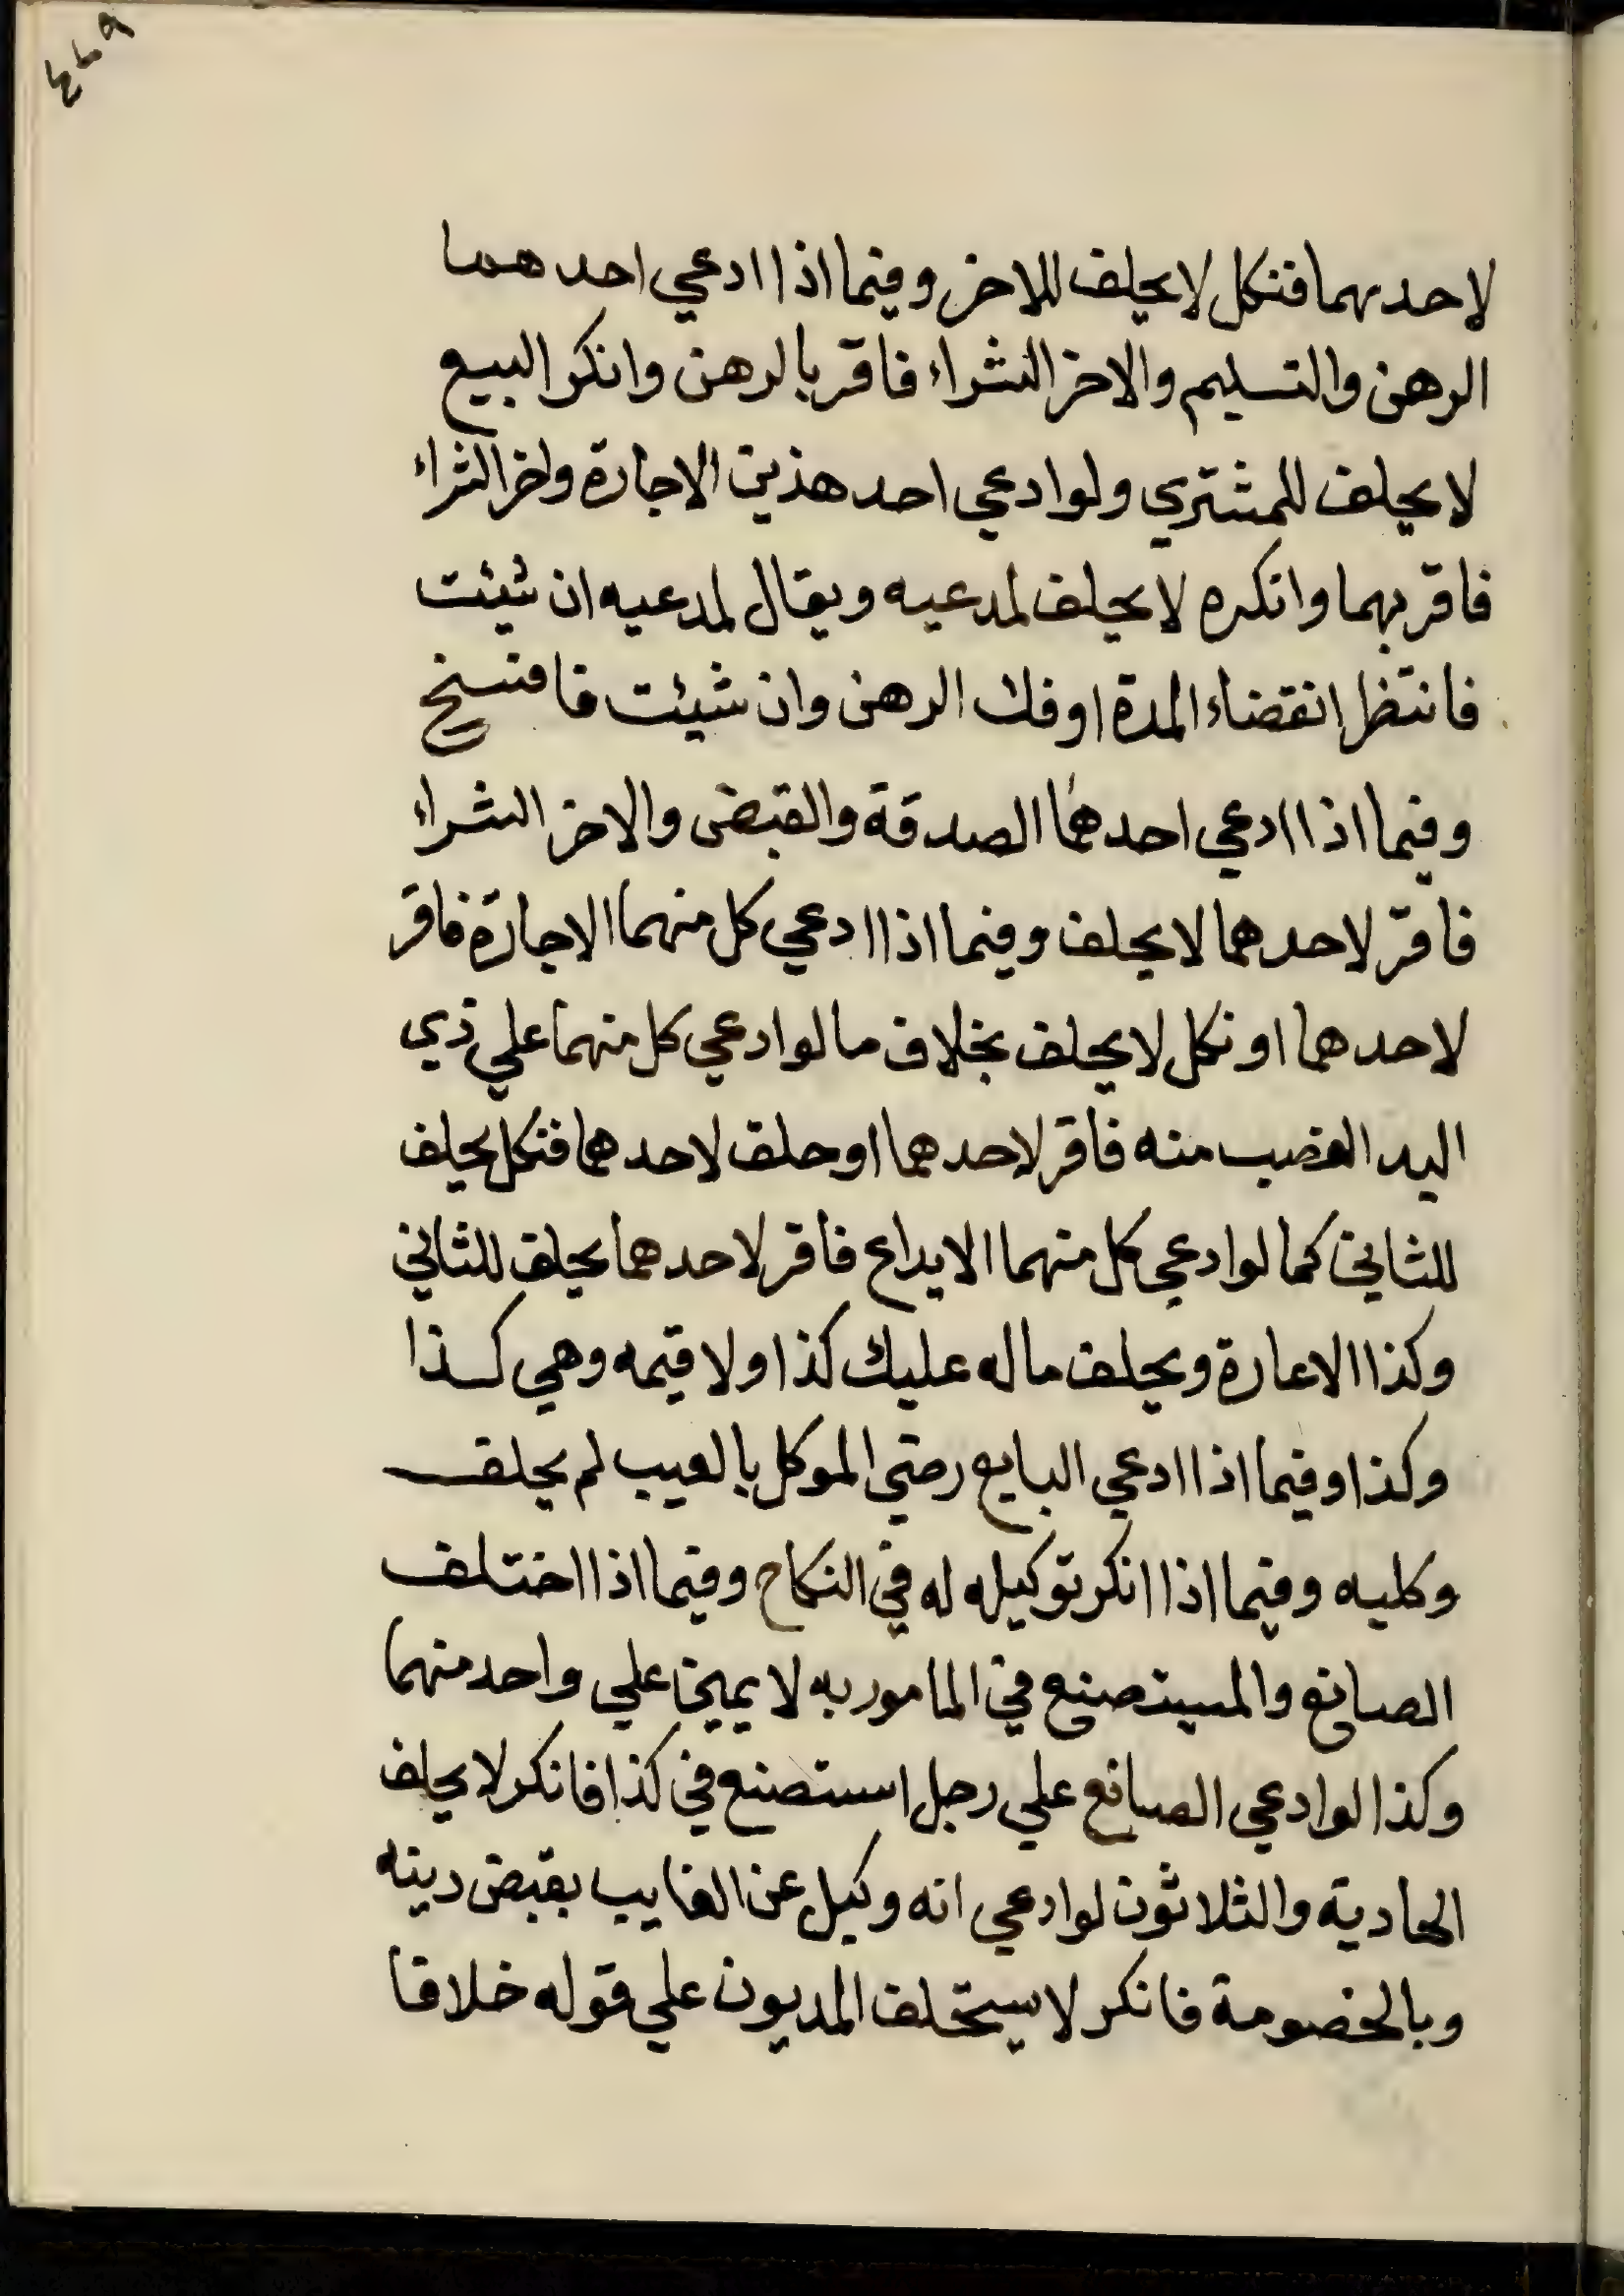 لاحدهما فنكل لا يحلف للاخر وفيما اذا ادعي احدهما
الرهن والتسليم والاخر الشراء فاقر بالرهن وانكر البيع
لا يحلف للمشتري ولوادعي احد هذين الاجارة واخر الشراء
فاقر بهما وانكره لا يحلف لمدعيه ويقال لمدعيه ان شئت
فانتظر انقضاء المدة او فك الرهن وان شيئت فافسخ
وفيما اذا ادعي احدهما الصدقة والقبض والاخر الشراء
فاقر لاحدهما لا يحلف وفيما اذا ادعي كل منهما الاجارة فاقر
لاحدهما او نكل لا يحلف بخلاف ما لوادعي كل منهما علي ذي
اليد الغصب منه فاقر لاحدهما او حلف لاحدهما فنكل يحلف
للثاني كما لوادعي كل منهما الايداع فاقر لاحدهما يحلف للثاني
وكذا الاعارة ويحلف ماله عليك كذا ولا قيمه وهي كذا
وكذا وفيما اذا ادعي البايع رضي الموكل بالعيب لم يحلف
وكليه وفيما اذا انكر توكيله له في النكاح وفيما اذا اختلف
الصانع والمستصنع في المامور به لا يمين علي واحد منهما
وكذا لوادعي الصانع علي رجل استصنع في كذا فانكر لا يحلف
الحادية والثلاثون لوادعي انه وكيل عن الغايب بقبض دينه
وبالخصومة فانكر لا يستحلف المديون علي قوله خلافا